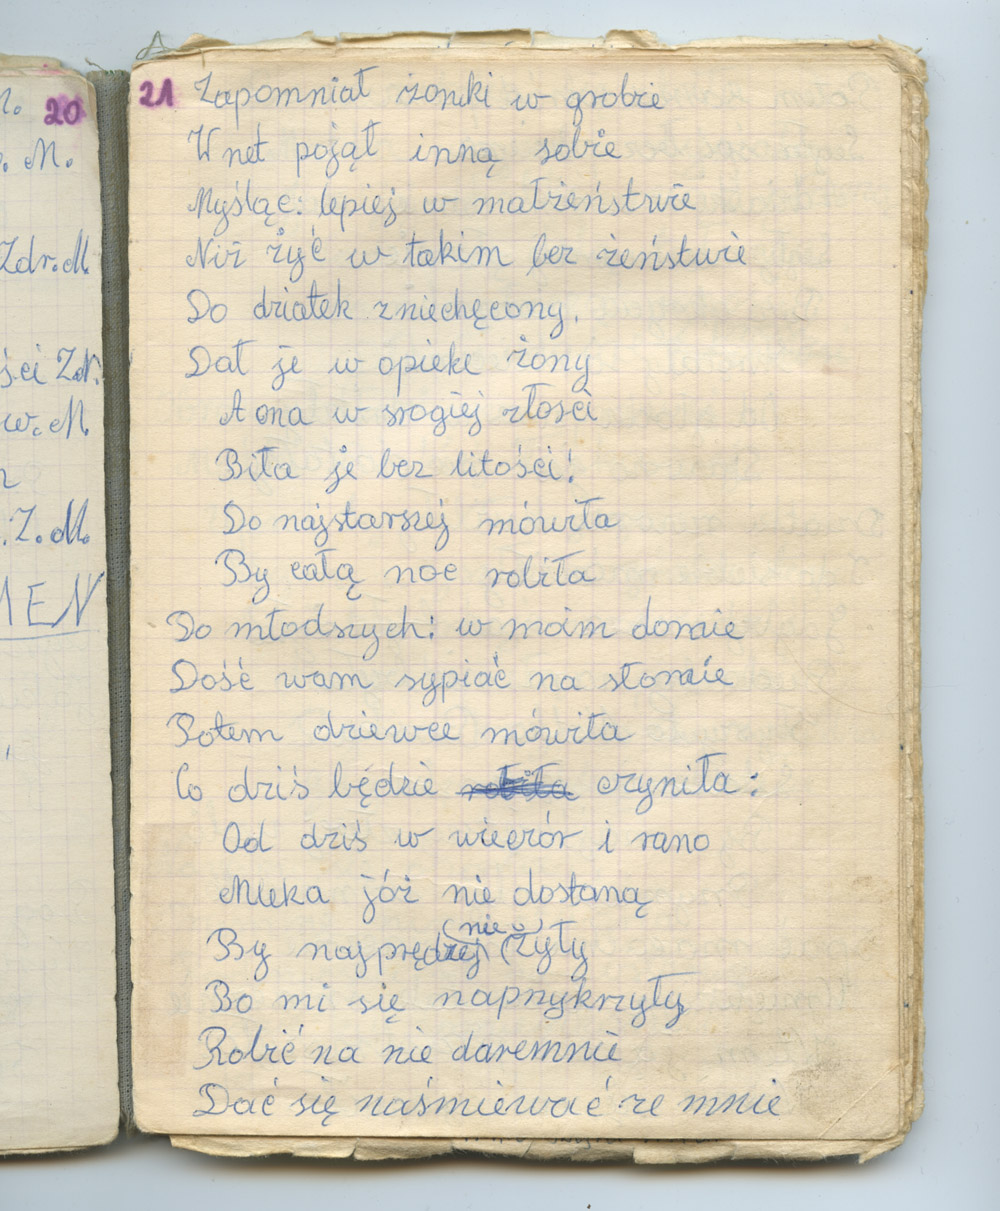 20
M.
Zdr.M.
ści Zdr.
w.M.
Z.M.
MEN
21 Zapomniał żonki w grobie
Wnet pojął inną sobie
Myśląc: lepiej w małżeństwie
Niż żyć w takim bez żeństwie
Do dziatek zniechęcony.
Dał je w opiekę żony
A ona w srogiej złości
Biła je bez litości!
Do najstarszej mówiła
By całą noc robiła
Do młodszych: w moim domie
Dość wam sypiać na słomie
Potem dziewce mówiła
Co dziś będzie robiła czyniła:
Od dziś w wieczór i rano
Mleka jóż nie dostaną
(nie)
By najprędzej (żyły
Bo mi się naprzykrzyły
Robić na nie daremnie
Dać się naśmiewać ze mnie